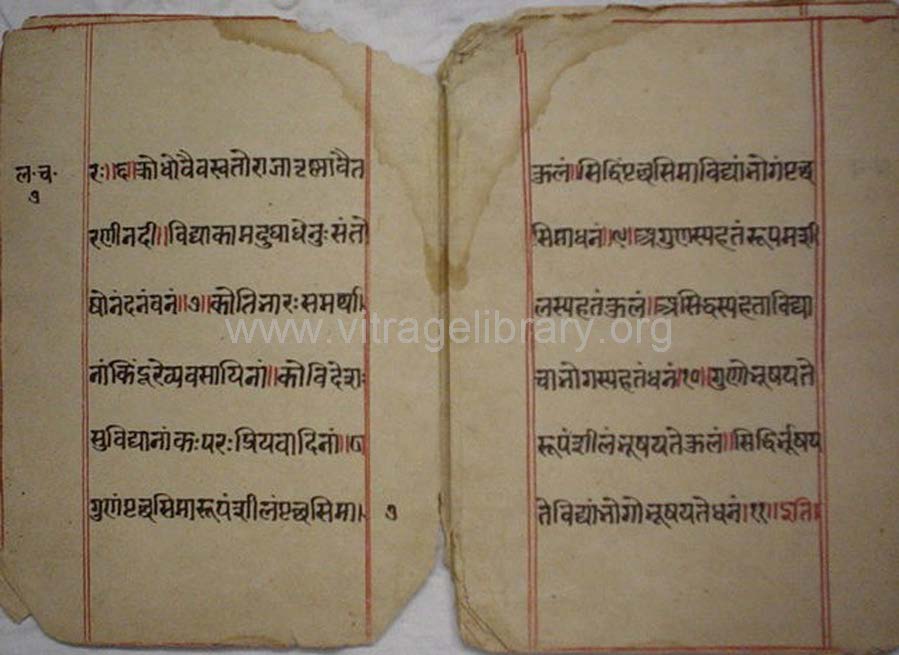 ल·च·
७
रः॥६॥क्रोधोवैवस्वतोराजातृष्णावैत
रणीनदी॥विद्याकामदुघाधेनुःसंतो
षोनंदनंवनं॥७॥कोतिभारःसमर्था।
नांकिंदूरेव्यवसायिनां॥कोविदेशः
सुविद्यानांकःपरःप्रियवादिनां॥८
गुणंपृच्छसिमारूपंशीलंपृच्छसिमा।
७
कुलं॥सिद्धिंपृच्छसिमाविद्यांभोगंपृच्छ
सिमाधनं॥९॥अगुणस्यहतंरूपमशी
लस्यहतंकुलं॥असिद्धस्यहताविद्या
चाभोगस्यहतंधनं॥१०॥गुणोभूषयते
रूपंशीलंभूषयतेकुलं॥सिद्धिर्भूषय
तेविद्यांभोगोभूषयतेधनं॥११॥इति॥
www.vitragelibrary.org